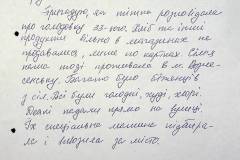 Пригадую, як тітка розповідала
про голодовку 33-го. Хліб та інші
продукти вільно в магазинах не
продавалися, лише по картках. Сім'я
наша тоді проживала в м. Возне-
сенську. Багато було біженців
у сіл. Всі були голодні, худі, хворі.
Деякі падали прямо на вулиці.
Їх спеціальна машина підбира-
ла і вивозила за місто.